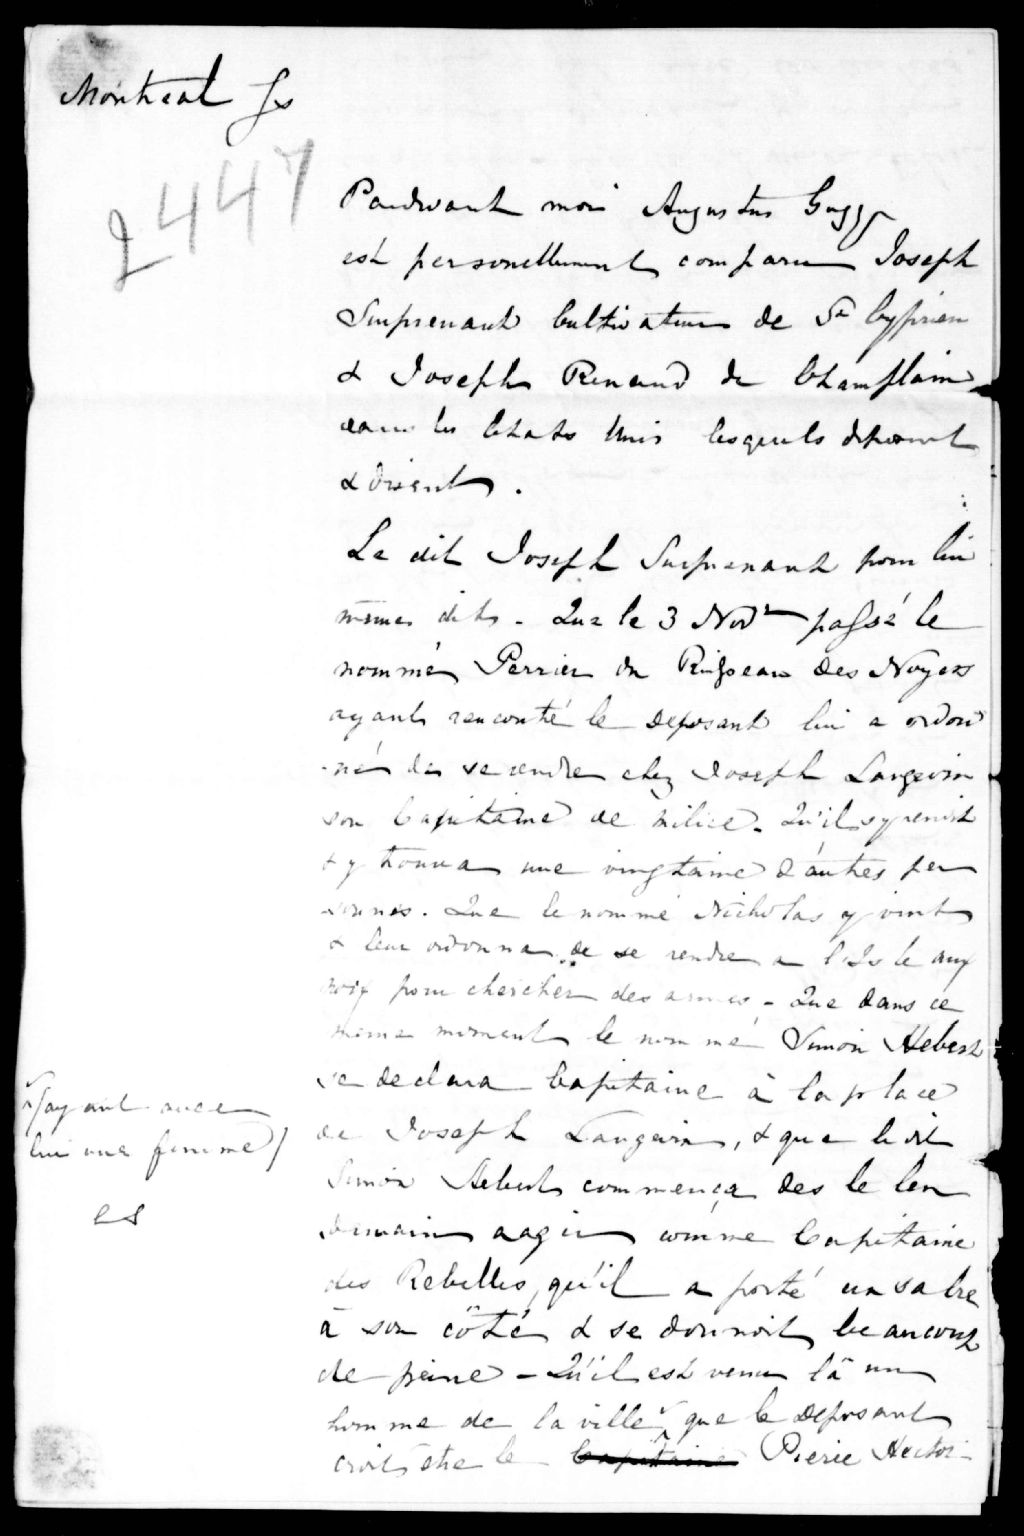 Montreal Ss
2447
Pardevant moi Augustus Gugy
est personellement comparu Joseph
Surprenant Cultivateur de St Cyprien
& Joseph Renaud de Champlain
dans les Etats Unis lesquels deposent
& disent.
Le dit Joseph Surprenant pour lui
même dit - Que le 3 Novr passé le
nommé Perrier du Ruisseau des Noyers
ayant rencontré le deposant lui a ordon
-né de se rendre chez Joseph Langevin
son Capitaine de milice - Qu'il s'y rendit
& y trouva une vingtaine d'autres per
sonnes. Que le nommé Nicholas y vint
& leur ordonna de se rendre a l'Isle aux
noix pour chercher des armes - Que dans ce
meme moment le nommé Simon Hebert
se declara Capitaine à la place
de Joseph Langevin, & que le dit
Simon Hebert commença des le len
demain a agir comme Capitaine
des Rebelles, qu'il a porté un sabre
à son côté & se donnoit beaucoup
de peine - Qu'il est venu là un
homme de la ville que le deposant
croit etre le Capitaine Pierre Hector
(ayant avec
lui une femme)